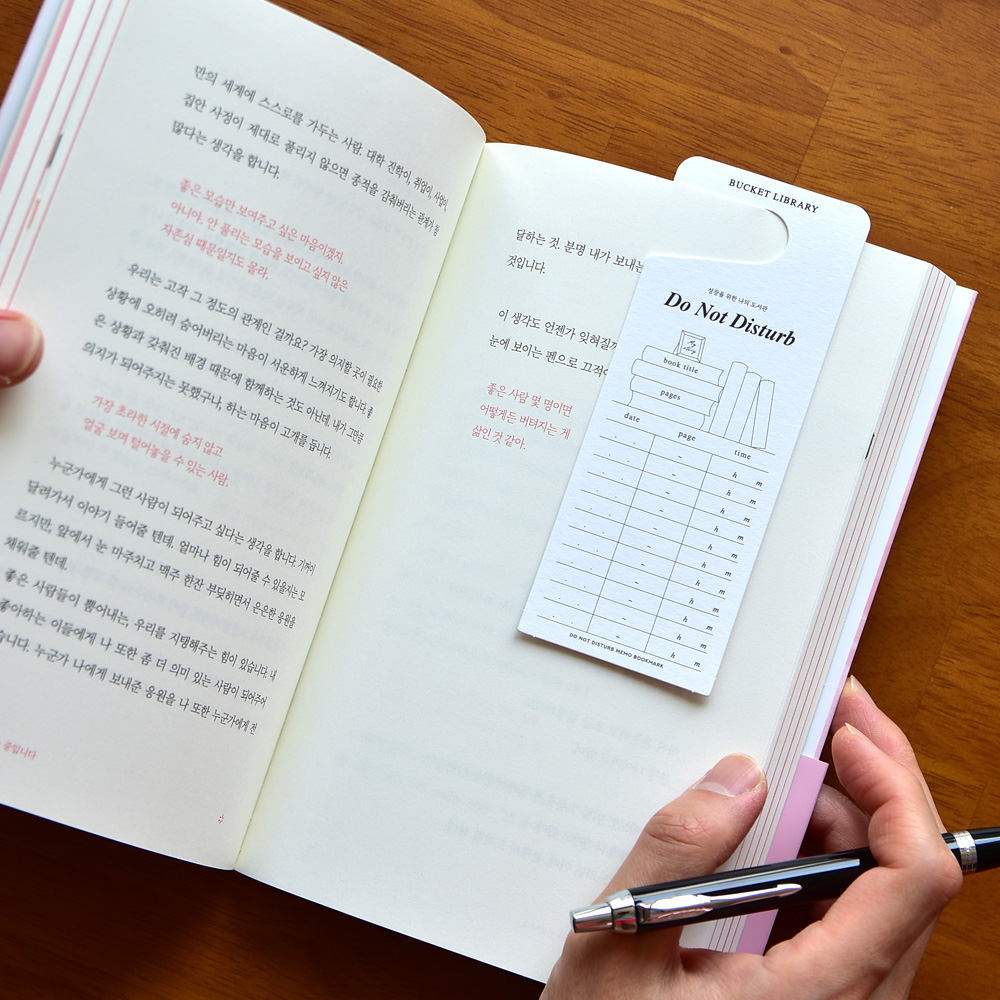 만의 세계에 스스로를 가두는 사람. 대학 진학이, 취업이, 사업이,
집안 사정이 제대로 풀리지 않으면 종적을 감춰버리는 관계가 참
많다는 생각을 합니다.
좋은 모습만 보여주고 싶은 마음이겠지.
아니야. 안 풀리는 모습을 보이고 싶지 않은
자존심 때문일지도 몰라.
우리는 고작 그 정도의 관계인 걸까요? 가장 의지할 곳이 필요한
상황에 오히려 숨어버리는 마음이 서운하게 느껴지기도 합니다. 좋
은 상황과 갖춰진 배경 때문에 함께하는 것도 아닌데, 내가 그만큼
의지가 되어주지는 못했구나, 하는 마음이 고개를 듭니다.
가장 초라한 시절에 숨지 않고
얼굴 보며 털어놓을 수 있는 사람.
누군가에게 그런 사람이 되어주고 싶다는 생각을 합니다. 기꺼이
달려가서 이야기 들어줄 텐데. 얼마나 힘이 되어줄 수 있을지는 모
르지만, 앞에서 눈 마주치고 맥주 한잔 부딪히면서 은은한 응원을
채워줄 텐데.
좋은 사람들이 뿜어내는, 우리를 지탱해주는 힘이 있습니다. 내
좋아하는 이들에게 나 또한 좀 더 의미 있는 사람이 되어주어
습니다. 누군가 나에게 보내준 응원을 나 또한 누군가에게 전
중입니다
달하는 것. 분명 내가 보내는
것입니다.
이 생각도 언젠가 잊혀질까
눈에 보이는 펜으로 끄적
좋은 사람 몇 명이면
어떻게든 버텨지는 게
삶인 것 같아.
BUCKET LIBRARY
성장을 위한 나의 도서관
Do Not Disturb
book title
pages
date page time
. . – h m
. . – h m
. . – h m
. . – h m
. . – h m
. . – h m
. . – h m
. . – h m
. . – h m
. . – h m
DO NOT DISTURB MEMO BOOKMARK